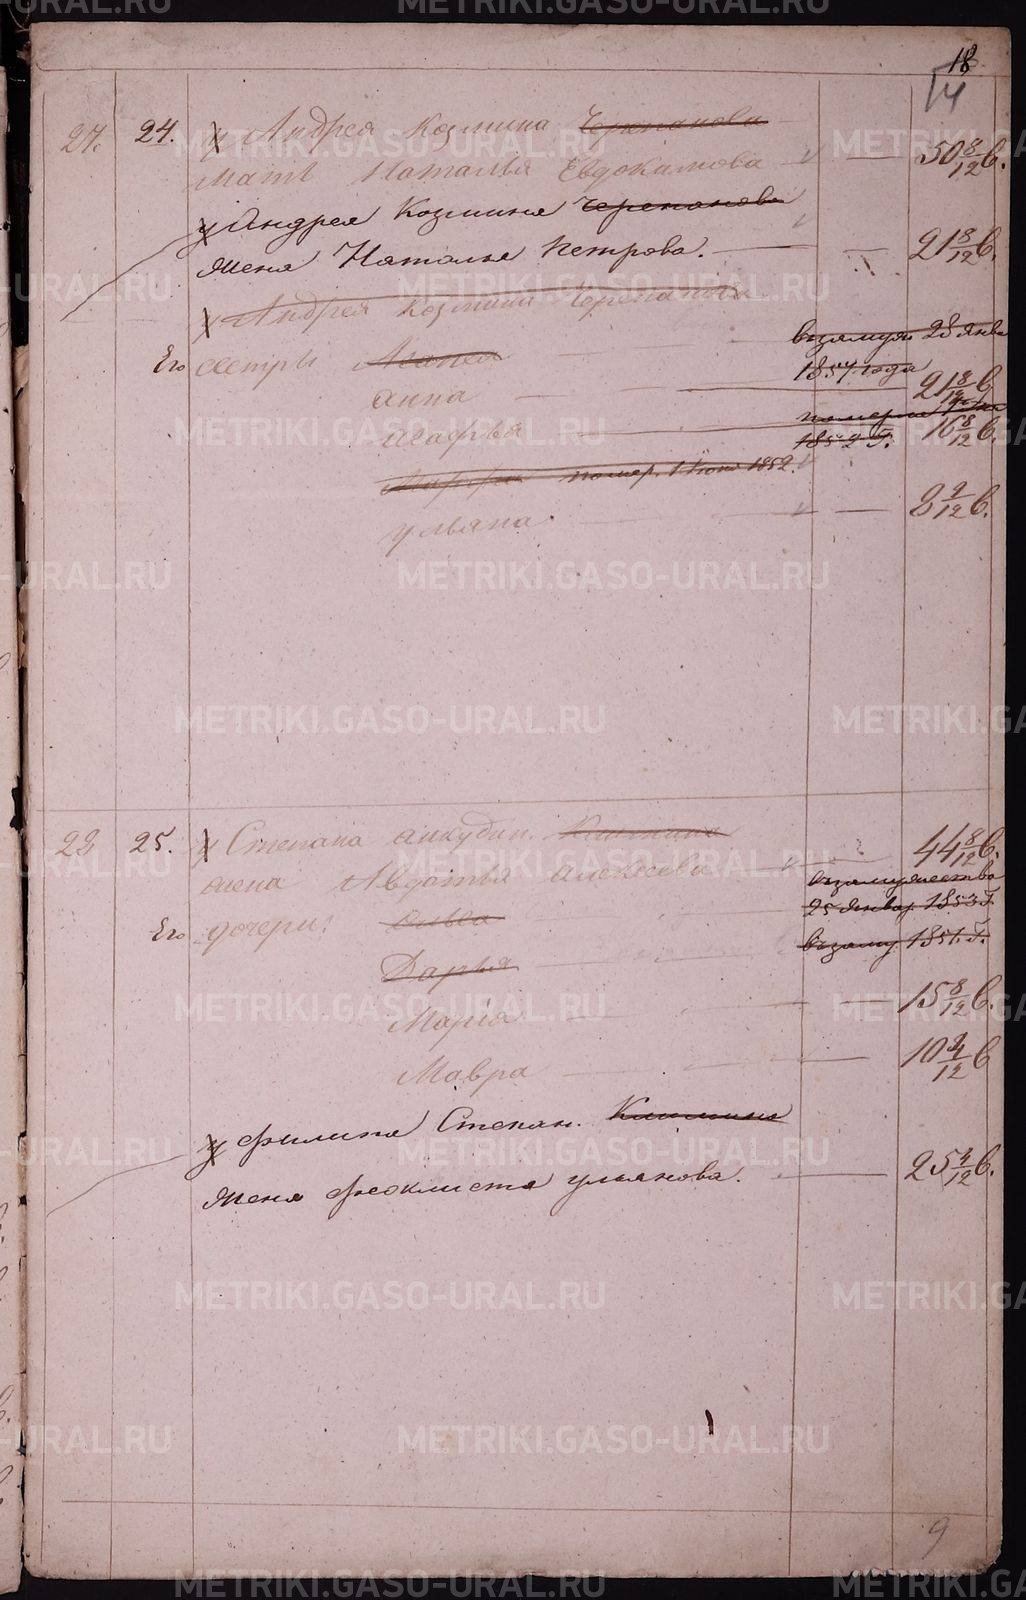 18
14
27. 24. у Андрея Козмина Черепанова
мать Наталья Евдокимова 50 8/12 в.
у Андрея Козмина Черепанова
жена Наталья Петрова. 21 8/12 в.
у Андрея Козмина Черепанова
Его сестры Агапея взамуж 28 янва
1857 года
анна 21 8/12 в
Агафья 16 8/12 в.
1852 г.
Марфа помер. 1 июня 1852.
ульяна. 8 9/12 в.
23 25. у Степана анкудин. Климина 44 8/12 в.
жена Авдотья алексеева взамужество
Его дочери: 25 Январ. 1853 г.
Дарья взаму. 1851. г.
Марiя 15 8/12 в.
Мавра 10 4/12 в
у Филипа Степан. Климина
жена феоклиста ульянова. 25 4/12 в.
9
METRIKI.GASO-URAL.RU